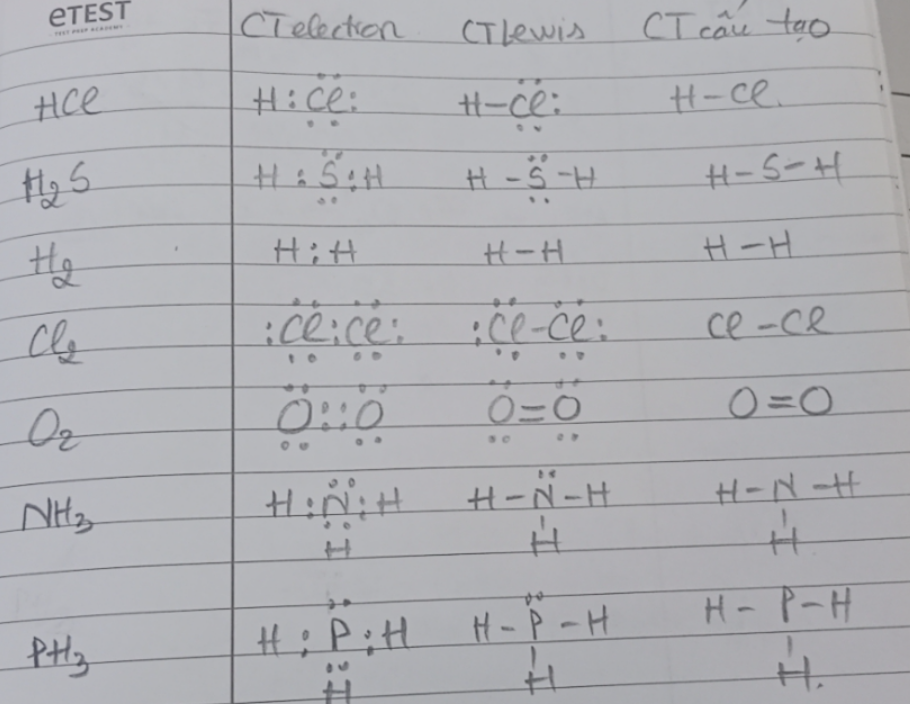 eTEST
TEST PREP ACADEMY
CTelection CTLewis CT cấu tạo
HCl H:Cl: H-Cl: H-Cl.
H2S H:S:H H-S-H H-S-H
H2 H:H H-H H-H
Cl2 :Cl:Cl: :Cl-Cl: Cl-Cl
O2 O::O O=O O=O
NH3 H:N:H H-N-H H-N-H
H H H
PH3 H:P:H H-P-H H-P-H
H H H.